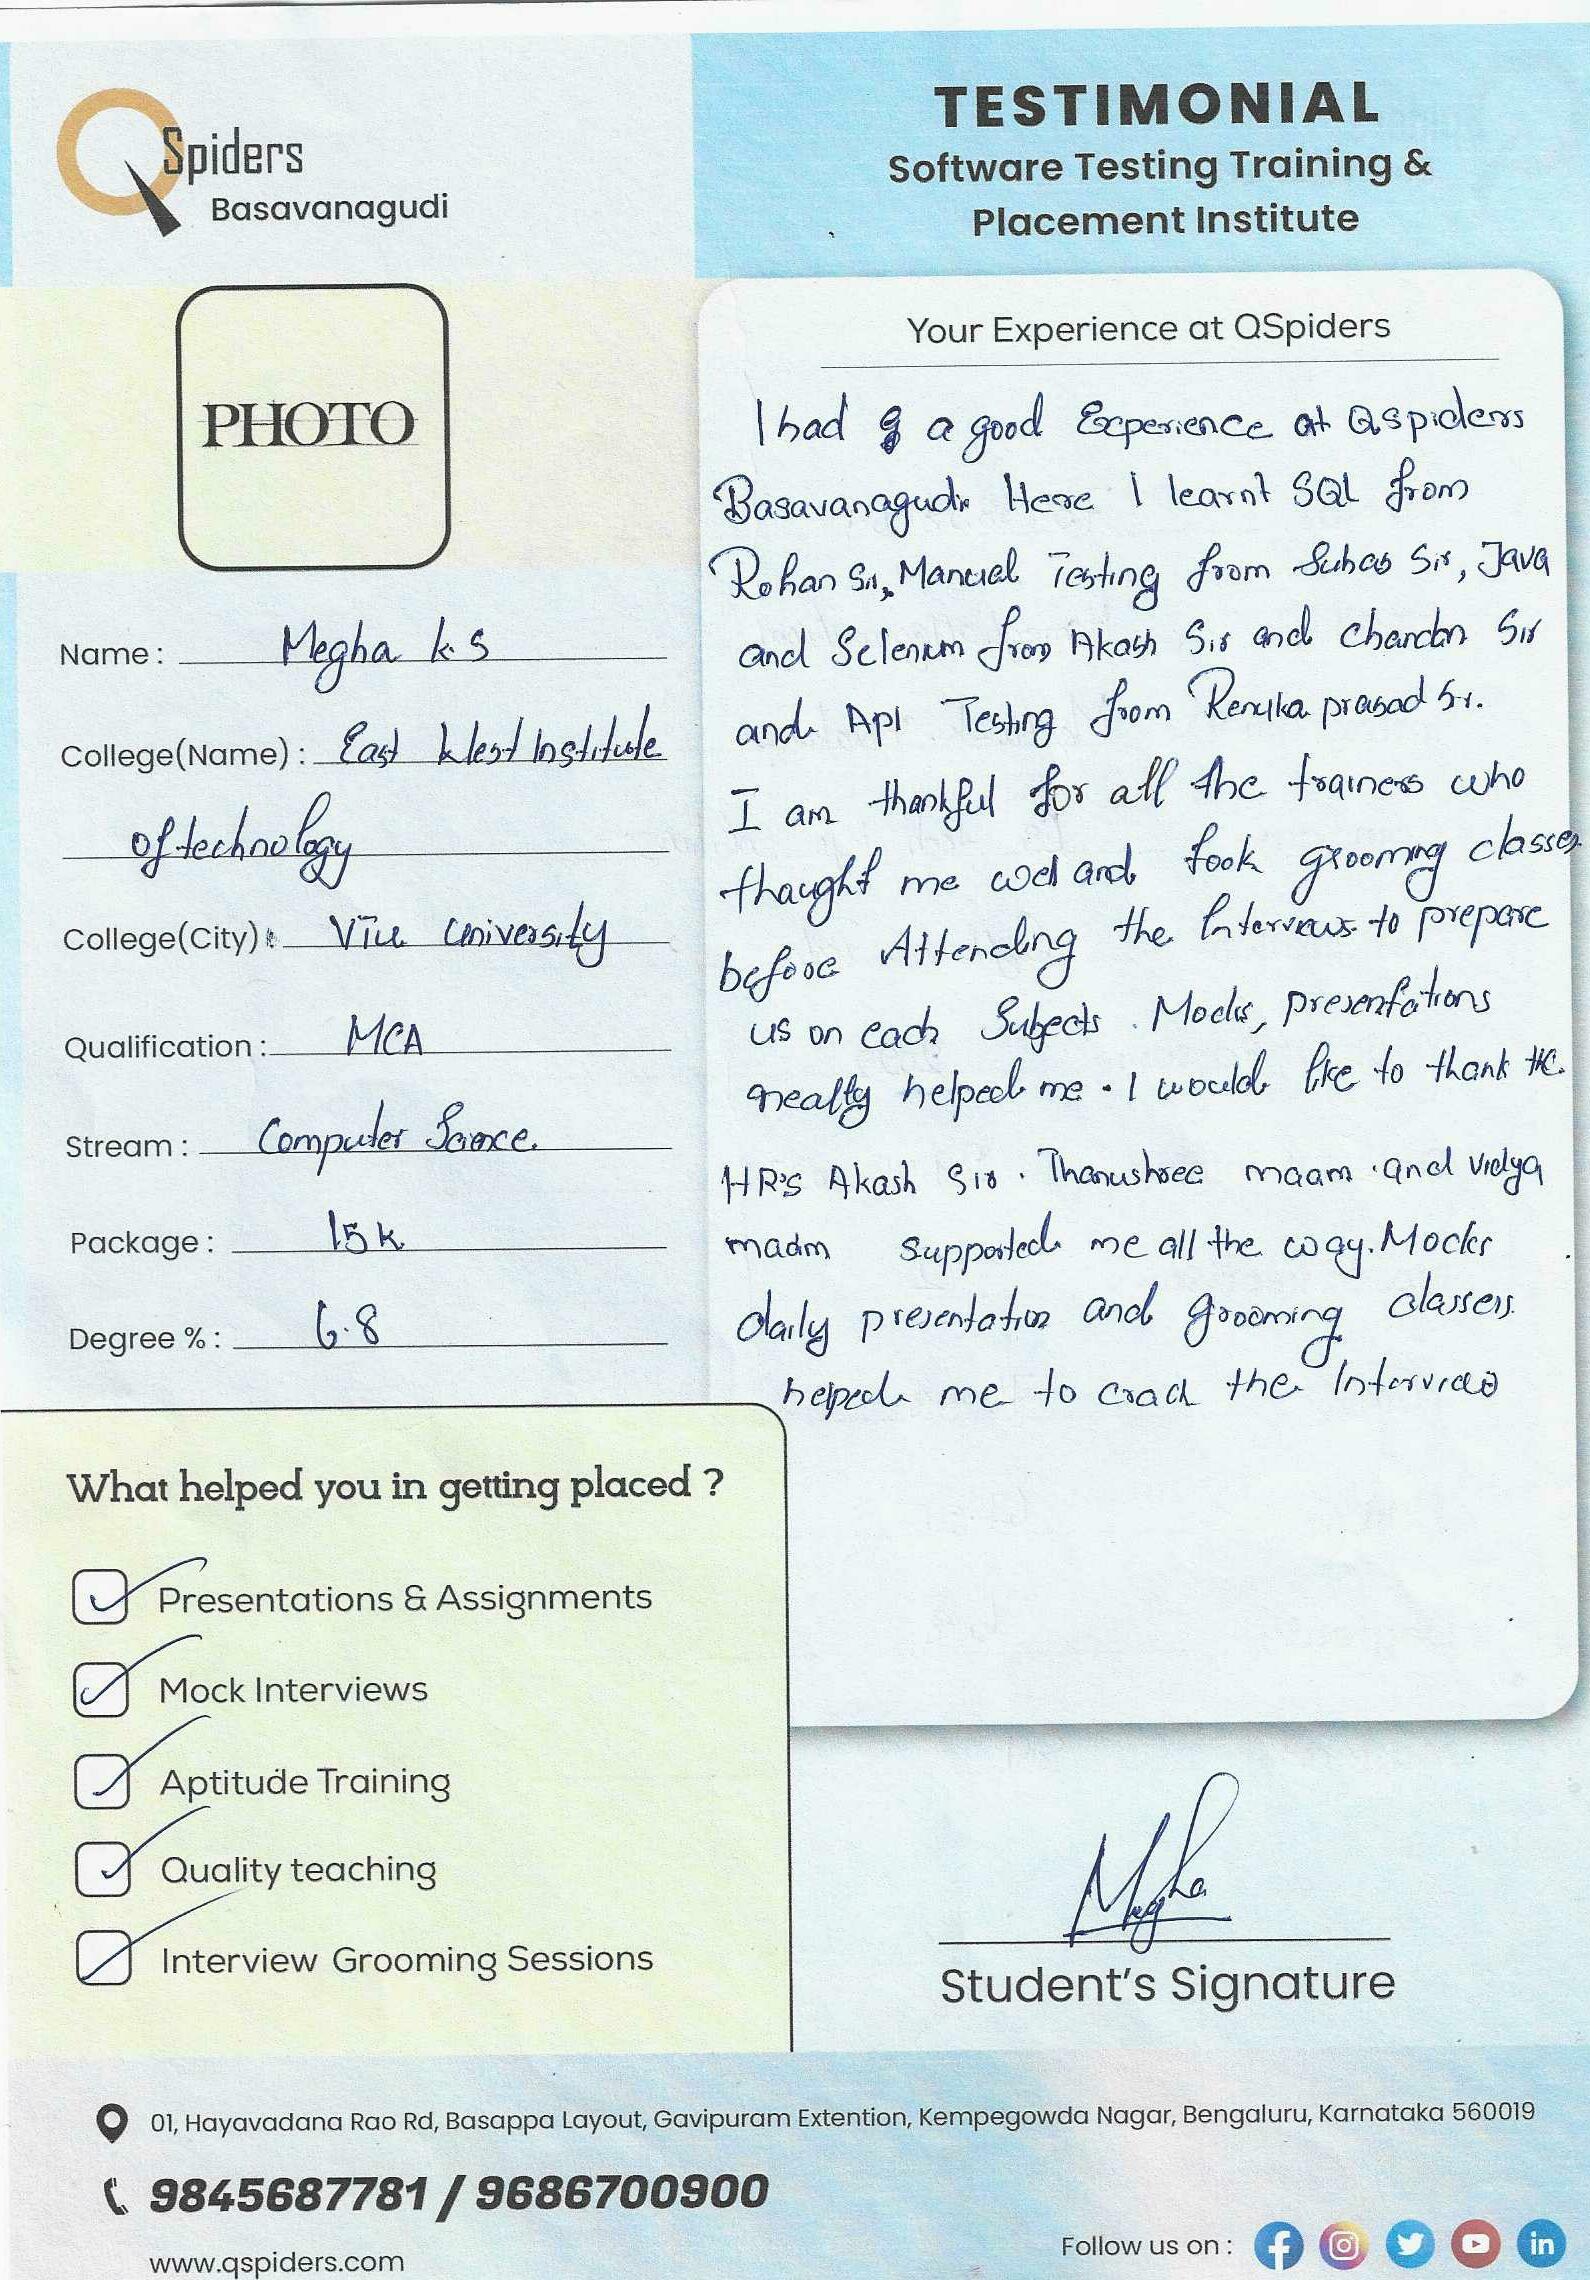 QSpiders
Basavanagudi
TESTIMONIAL
Software Testing Training &
Placement Institute
PHOTO
Name : Megha k.S
College(Name) : East West Institute
of technology
College(City) : VTU University
Qualification : MCA
Stream : Computer Science.
Package : 15k
Degree % : 6.8
Your Experience at QSpiders
I had a good Experience at QSpiders
Basavanagudi. Here I learnt SQL from
Rohan Sir, Manual Testing from Suhas Sir, Java
and Selenium from Akash Sir and Chandan Sir
and Api Testing from Renuka prasad Sir.
I am thankful for all the trainers who
thaught me well and took grooming classes
before Attending the Interviews to prepare
us on each Subjects. Mocks, presentations
really helped me. I would like to thank the
HR's Akash Sir. Thanushree maam and vidya
madm supported me all the way. Mocks
daily presentation and grooming classes
helped me to crack the Interview
What helped you in getting placed ?
Presentations & Assignments
Mock Interviews
Aptitude Training
Quality teaching
Interview Grooming Sessions
Megha
Student's Signature
01, Hayavadana Rao Rd, Basappa Layout, Gavipuram Extention, Kempegowda Nagar, Bengaluru, Karnataka 560019
9845687781 / 9686700900
www.qspiders.com
Follow us on :